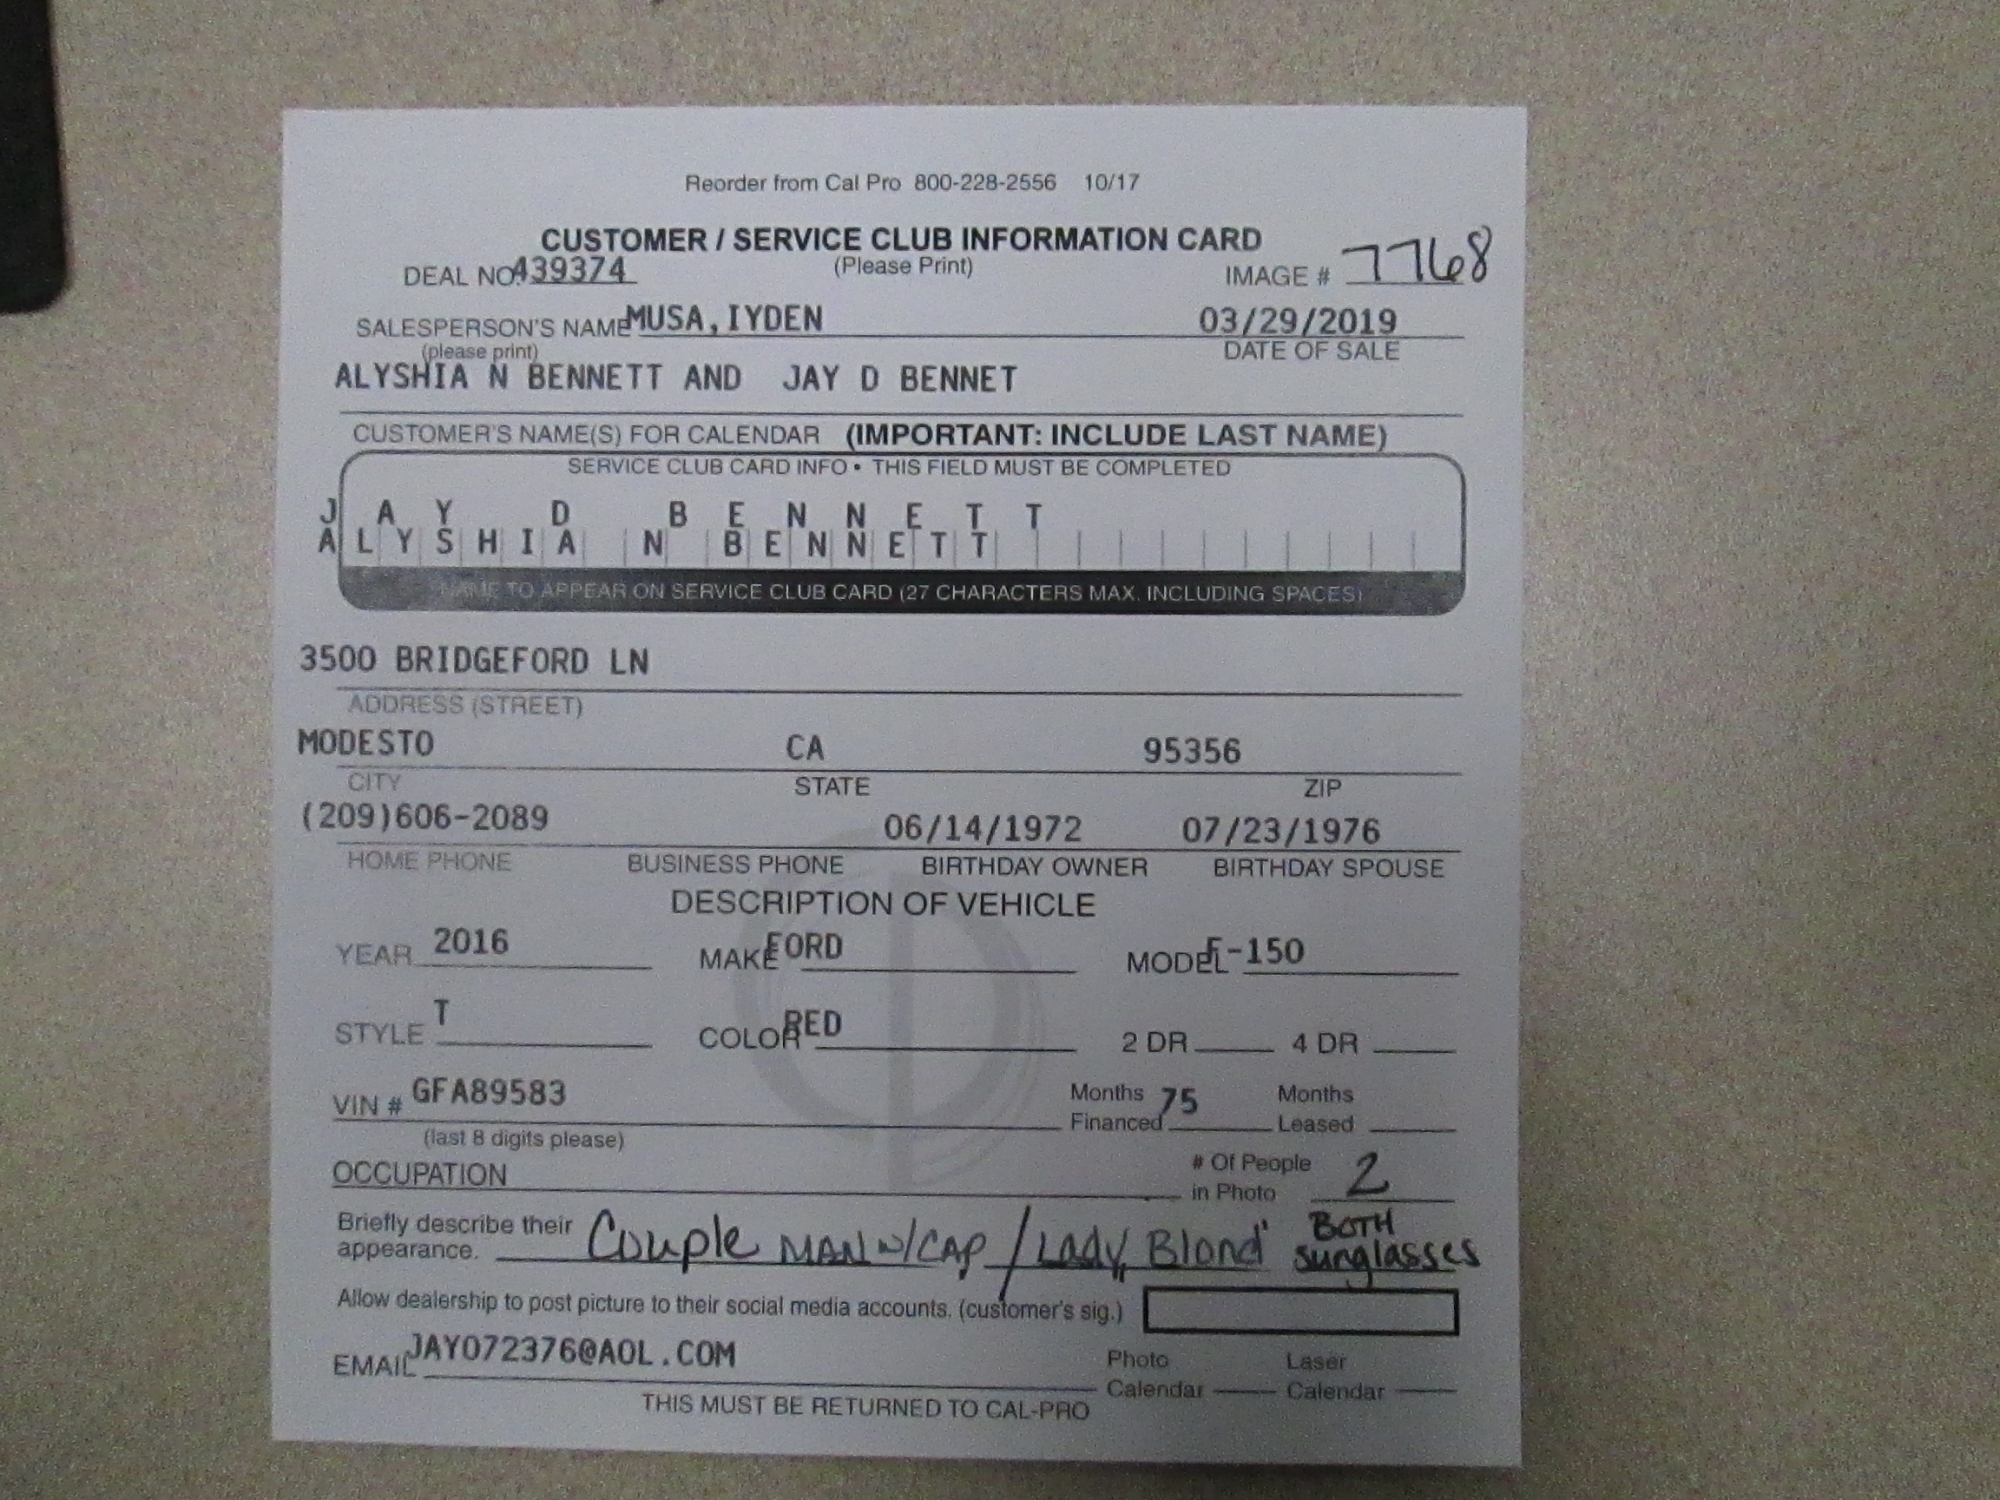 Reorder from Cal Pro 800-228-2556 10/17
CUSTOMER / SERVICE CLUB INFORMATION CARD
DEAL NO. 439374 (Please Print) IMAGE # 7768
SALESPERSON'S NAME MUSA, IYDEN 03/29/2019
(please print) DATE OF SALE
ALYSHIA N BENNETT AND JAY D BENNET
CUSTOMER'S NAME(S) FOR CALENDAR (IMPORTANT: INCLUDE LAST NAME)
SERVICE CLUB CARD INFO • THIS FIELD MUST BE COMPLETED
JAY D BENNETT
ALYSHIA N BENNETT
NAME TO APPEAR ON SERVICE CLUB CARD (27 CHARACTERS MAX. INCLUDING SPACES)
3500 BRIDGEFORD LN
ADDRESS (STREET)
MODESTO CA 95356
CITY STATE ZIP
(209)606-2089 06/14/1972 07/23/1976
HOME PHONE BUSINESS PHONE BIRTHDAY OWNER BIRTHDAY SPOUSE
DESCRIPTION OF VEHICLE
YEAR 2016 MAKE FORD MODEL F-150
STYLE T COLOR RED 2 DR 4 DR
VIN # GFA89583 Months Financed 75 Months Leased
(last 8 digits please)
OCCUPATION # Of People in Photo 2
Briefly describe their appearance. Couple MAN w/CAP / Lady, Blond BOTH sunglasses
Allow dealership to post picture to their social media accounts. (customer's sig.)
EMAIL JAY072376@AOL.COM Photo Calendar Laser Calendar
THIS MUST BE RETURNED TO CAL-PRO